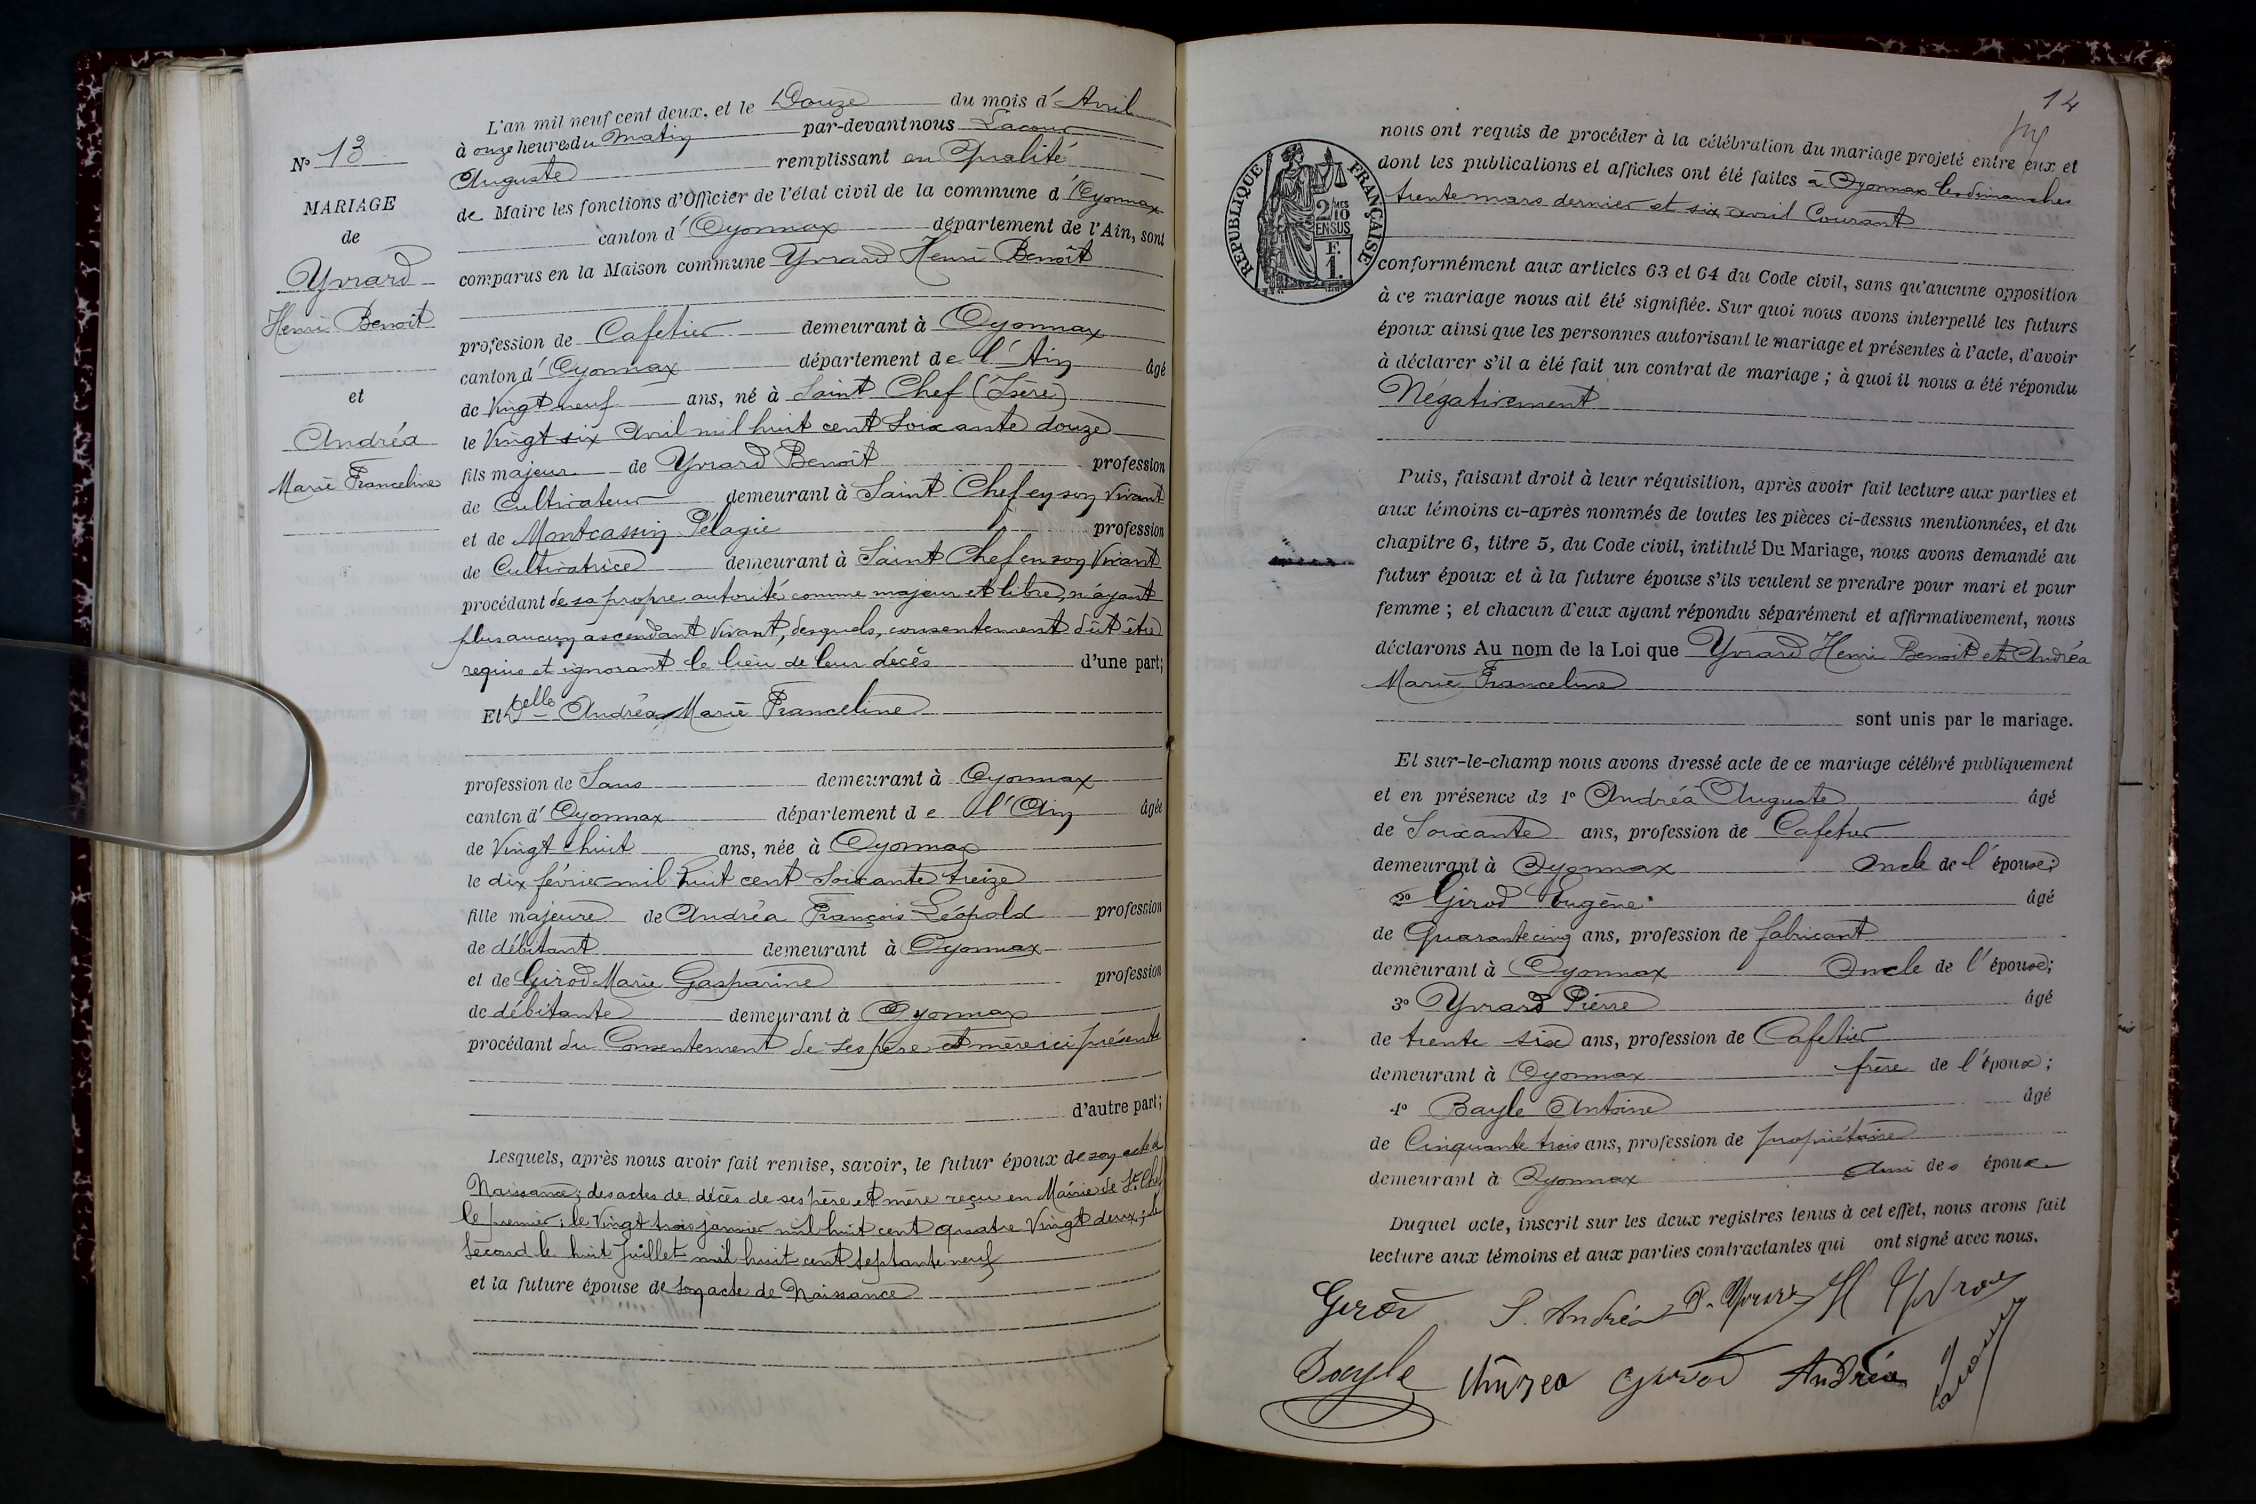 N° 13
MARIAGE
de
Yvrard
Henri Benoît
et
Andréa
Marie Franceline
L'an mil neuf cent deux, et le Douze du mois d'Avril
à onze heures du Matin par-devant nous Lacour
Auguste remplissant en Qualité
de Maire les fonctions d'Officier de l'état civil de la commune d'Oyonnax
canton d'Oyonnax département de l'Ain, sont
comparus en la Maison commune Yvrard Henri Benoît
profession de Cafetier demeurant à Oyonnax
canton d'Oyonnax département de l'Ain âgé
de Vingt neuf ans, né à Saint Chef (Isère)
le Vingt six Avril mil huit cent Soixante douze
fils majeur de Yvrard Benoît profession
de Cultivateur demeurant à Saint Chef en son vivant
et de Montcassin Pélagie profession
de Cultivatrice demeurant à Saint Chef en son Vivant
procédant de sa propre autorité comme majeur et libre, n'ayant
plus aucun ascendant vivant, desquels, consentement dût être
requis et ignorant le lieu de leur décès d'une part;
Et Delle Andréa Marie Franceline
profession de Sans demeurant à Oyonnax
canton d'Oyonnax département de l'Ain âgée
de Vingt huit ans, née à Oyonnax
le dix février mil huit cent Soixante treize
fille majeure de Andréa François Léopold profession
de débitant demeurant à Oyonnax
et de Girod Marie Gasparine profession
de débitante demeurant à Oyonnax
procédant du Consentement de ses père et mère ici présents
d'autre part;
Lesquels, après nous avoir fait remise, savoir, le futur époux de son acte de
Naissance; des actes de décès de ses père et mère reçu en Mairie de St Chef
le premier, le Vingt trois janvier mil huit cent quatre Vingt deux; le
Second le huit Juillet mil huit cent septante neuf
et la future épouse de son acte de Naissance
14
nous ont requis de procéder à la célébration du mariage projeté entre eux et
dont les publications et affiches ont été faites à Oyonnax les dimanches
trente mars dernier et six avril Courant
RÉPUBLIQUE FRANÇAISE
2/10
MES
EN SUS
F.
1.
conformément aux articles 63 et 64 du Code civil, sans qu'aucune opposition
à ce mariage nous ait été signifiée. Sur quoi nous avons interpellé les futurs
époux ainsi que les personnes autorisant le mariage et présentes à l'acte, d'avoir
à déclarer s'il a été fait un contrat de mariage; à quoi il nous a été répondu
Négativement
Puis, faisant droit à leur réquisition, après avoir fait lecture aux parties et
aux témoins ci-après nommés de toutes les pièces ci-dessus mentionnées, et du
chapitre 6, titre 5, du Code civil, intitulé Du Mariage, nous avons demandé au
futur époux et à la future épouse s'ils veulent se prendre pour mari et pour
femme; et chacun d'eux ayant répondu séparément et affirmativement, nous
déclarons Au nom de la Loi que Yvrard Henri Benoît et Andréa
Marie Franceline
sont unis par le mariage.
Et sur-le-champ nous avons dressé acte de ce mariage célébré publiquement
et en présence de 1° Andréa Auguste âgé
de Soixante ans, profession de Cafetier
demeurant à Oyonnax Oncle de l'épouse;
2° Girod Eugène âgé
de Quarante cinq ans, profession de fabricant
demeurant à Oyonnax Oncle de l'épouse;
3° Yvrard Pierre âgé
de trente six ans, profession de Cafetier
demeurant à Oyonnax frère de l'époux;
4° Bayle Antoine âgé
de Cinquante trois ans, profession de propriétaire
demeurant à Oyonnax Ami des époux
Duquel acte, inscrit sur les deux registres tenus à cet effet, nous avons fait
lecture aux témoins et aux parties contractantes qui ont signé avec nous.
Girod S. Andréa P. Yvrard H Yvrard
Bayle Andrea Girod Andréa Lacour